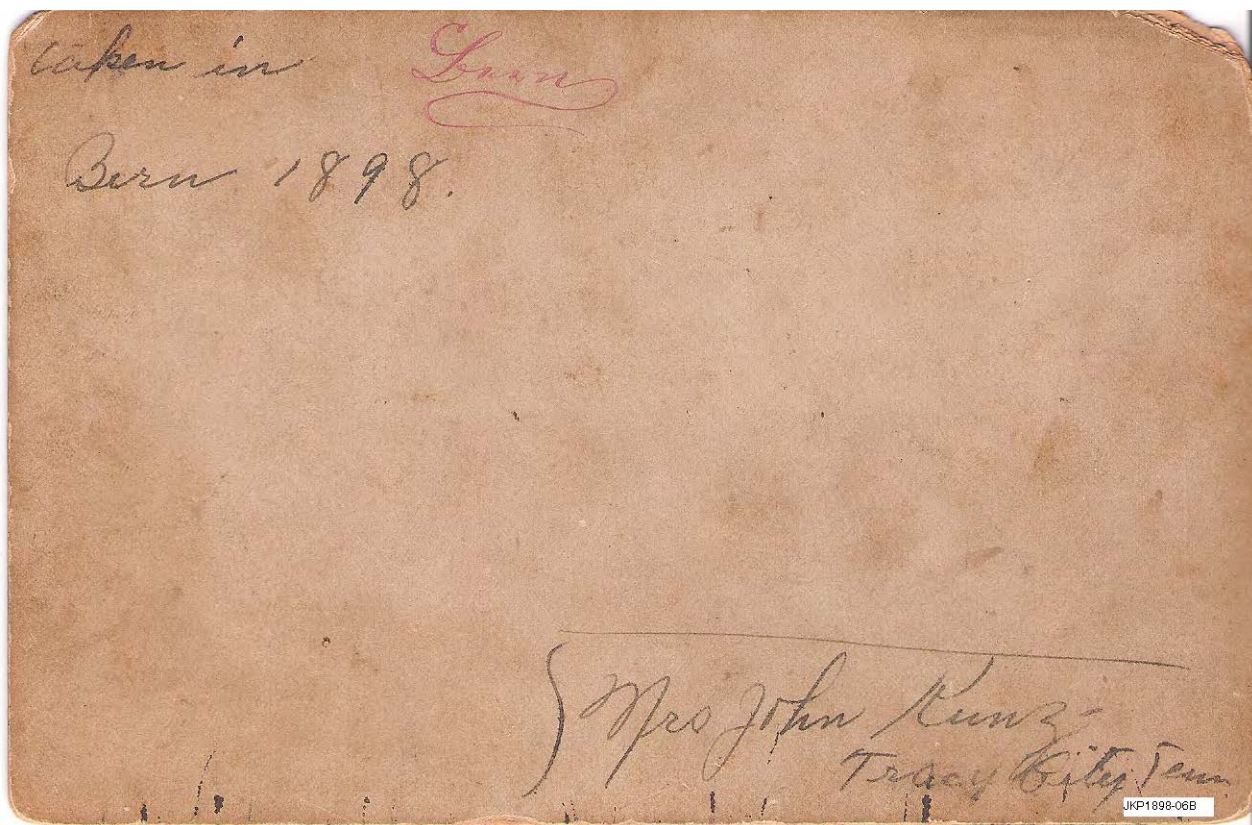 taken in
Bern 1898.
Mrs John Kunz
Tracy City, Tenn
JKP1898-06B